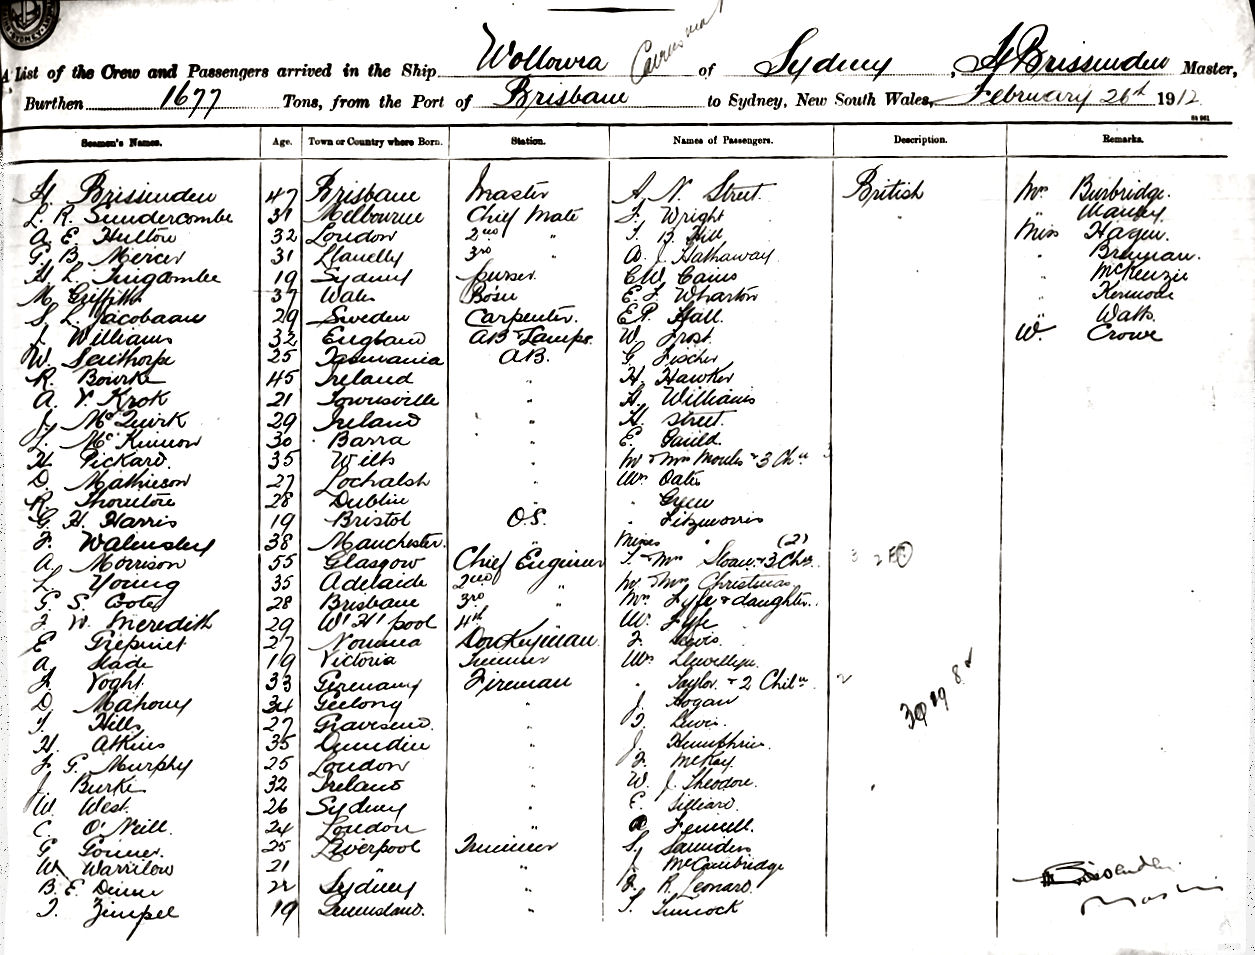 A List of the Crew and Passengers arrived in the Ship Wollowra of Sydney, H Brissenden Master,
Burthen 1677 Tons, from the Port of Brisbane to Sydney, New South Wales, February 26th 1912
Seamen's Names. Age. Town or Country where Born. Station. Names of Passengers. Description. Remarks.
H Brissenden 47 Brisbane Master A. N. Street British Mrs Burbridge
L. R. Sundercombe 31 Melbourne Chief Mate J. Wright " Mauley
A. E. Hulton 32 London 2nd " T. B. Hill Miss Hagen
G. B. Mercer 31 Llanelly 3rd " A. J. Hathaway "
H. L. Tingcombe 19 Sydney purser C W Cains " McKenzie
M. Griffiths 37 Wales Bosn E. J. Wharton " Kermode
S. L. Jacobsson 29 Sweden Carpenter E P. Hall " Watts
J. Williams 32 England AB & Lamps W. Frost W. Crowe
W. Scrithorpe 25 Tasmania A.B. G. Fischer
R. Bourke 45 Ireland " H. Hawker
A. V. Krok 21 Townsville " A. Williams
J. McQuirk 29 Ireland " H. Street
L. McKinnon 30 Barra " E. Gauld
H. Pickard 35 Wilts " Mr & Mrs Moules & 3 Chn 3
D. Mathieson 27 Lochalsh " Mrs Oates
R. Thornton 28 Dublin " Green
G. H. Harris 19 Bristol O.S. " Fitzmorris
F. Walmsley 38 Manchester " Misses " (2)
A. Morrison 55 Glasgow Chief Engineer T. & Mrs Sloan & 3 Chn 3
L. Young 35 Adelaide 2nd " Mr & Mrs Christmas
G. S. Coote 28 Brisbane 3rd " Mrs Fyfe & daughter
F. W. Meredith 29 W'H'pool 4th " W. Fyfe
E. Grepinet 27 Noumea Donkeyman F. Lewis
A. Slade 19 Victoria Trimmer Mrs Llewellyn
F. Voght 33 Germany Fireman " Taylor & 2 Chiln 2
D. Mahony 34 Geelong " J. Hogan
T. Hills 27 Gravesend " T. Lewis
H. Atkins 35 Dunedin " J. Humphries
F. G. Murphy 25 London " F. McKay
J. Burke 32 Ireland " W. J. Theodore
W. West 26 Sydney " E. Gilliard
C. O'Neill 24 London " Fennell
G. Gonner 25 Liverpool Trimmer S. Saunders
W. Warrilow 21 " " J. McCambridge
B. E. Dunn 22 Sydney " J. R. Leonard
T. Zimpel 19 Queensland " T. Tunnock
Brissenden
Master